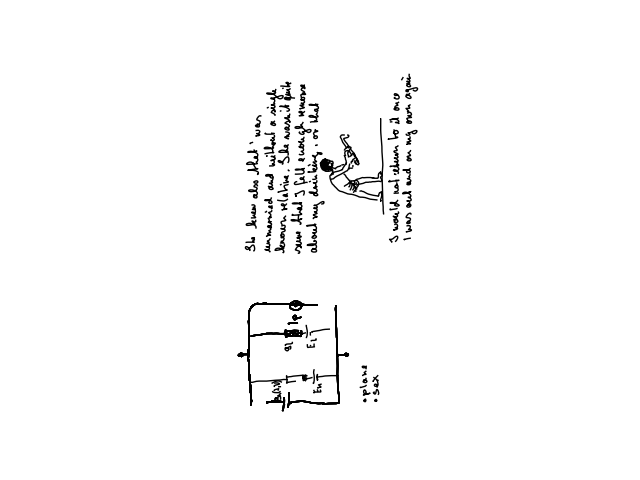 She knew also that I was
unmarried and without a single
known relative. She wasn't quite
sure that I felt enough remorse
about my drinking, or that
I would not return to it once
I was out and on my own again
gL
Ip
EL
En
• plane
• sex